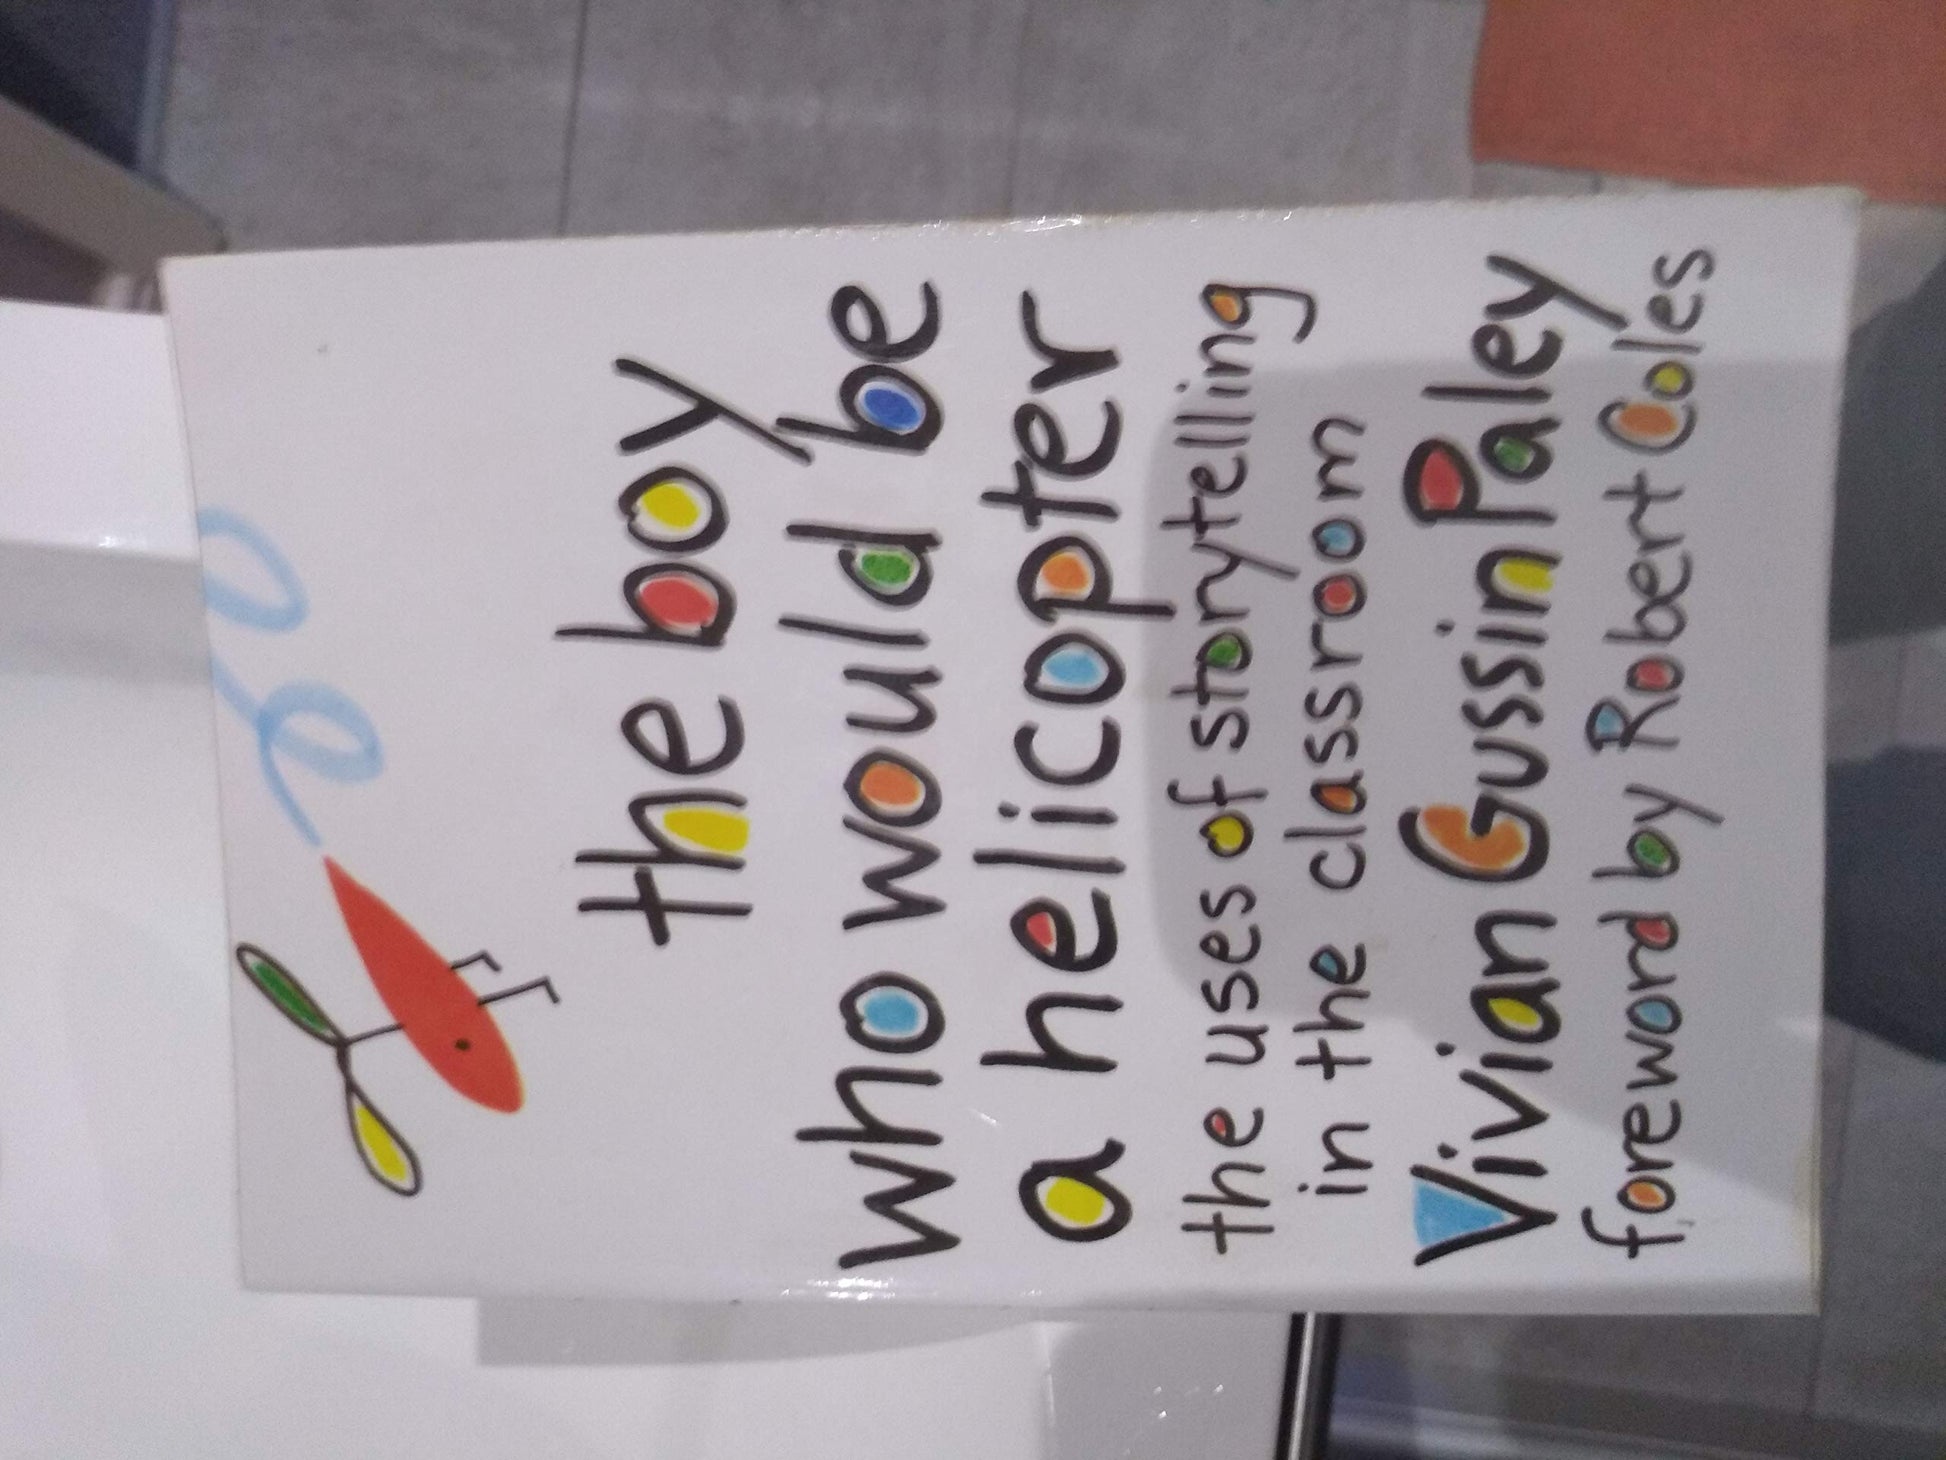 the boy
who would be
a helicopter
the uses of storytelling
in the classroom
Vivian Gussin Paley
foreword by Robert Coles